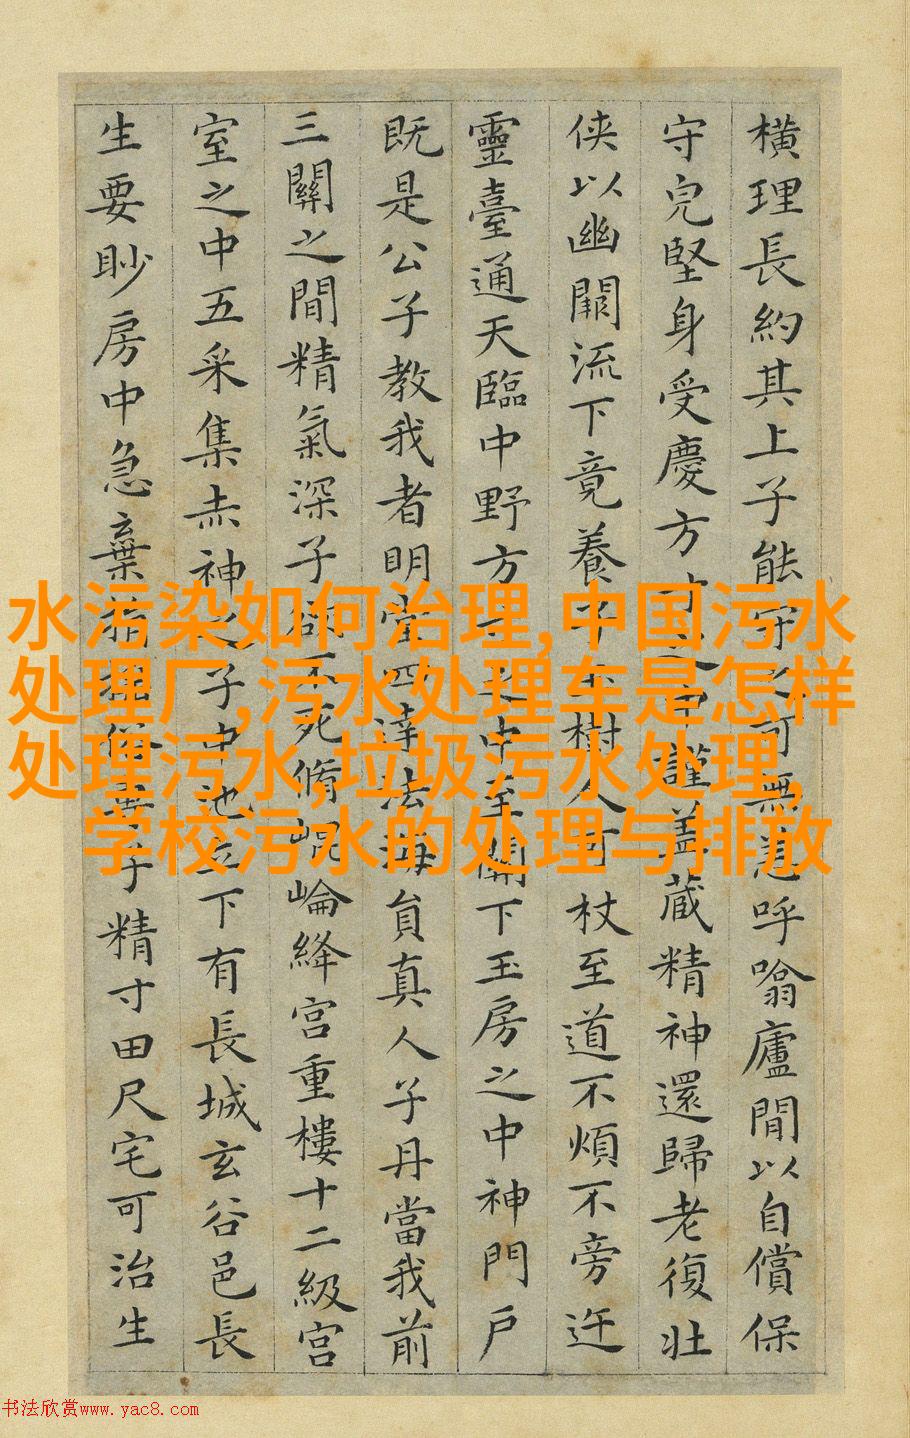 橫理長約其上子能守之可無恙呼噏廬間以自償保
守完堅身受慶方寸之中謹蓋藏精神還歸老復壯
侠以幽闕流下竟養子玉樹令可杖至道不煩不旁迕
靈臺通天臨中野方寸之中至關下玉房之中神門戶
既是公子教我者明堂四達法海員真人子丹當我前
三關之間精氣深子欲不死脩崐崘絳宮重樓十二級宮
室之中五采集赤神之子中池立下有長城玄谷邑長
生要眇房中急棄捐 子精寸田尺宅可治生
水污染如何治理,中国污水
处理厂,污水处理车是怎样
处理污水,垃圾污水处理,
学校污水的处理与排放
书法欣赏www.yac8.com